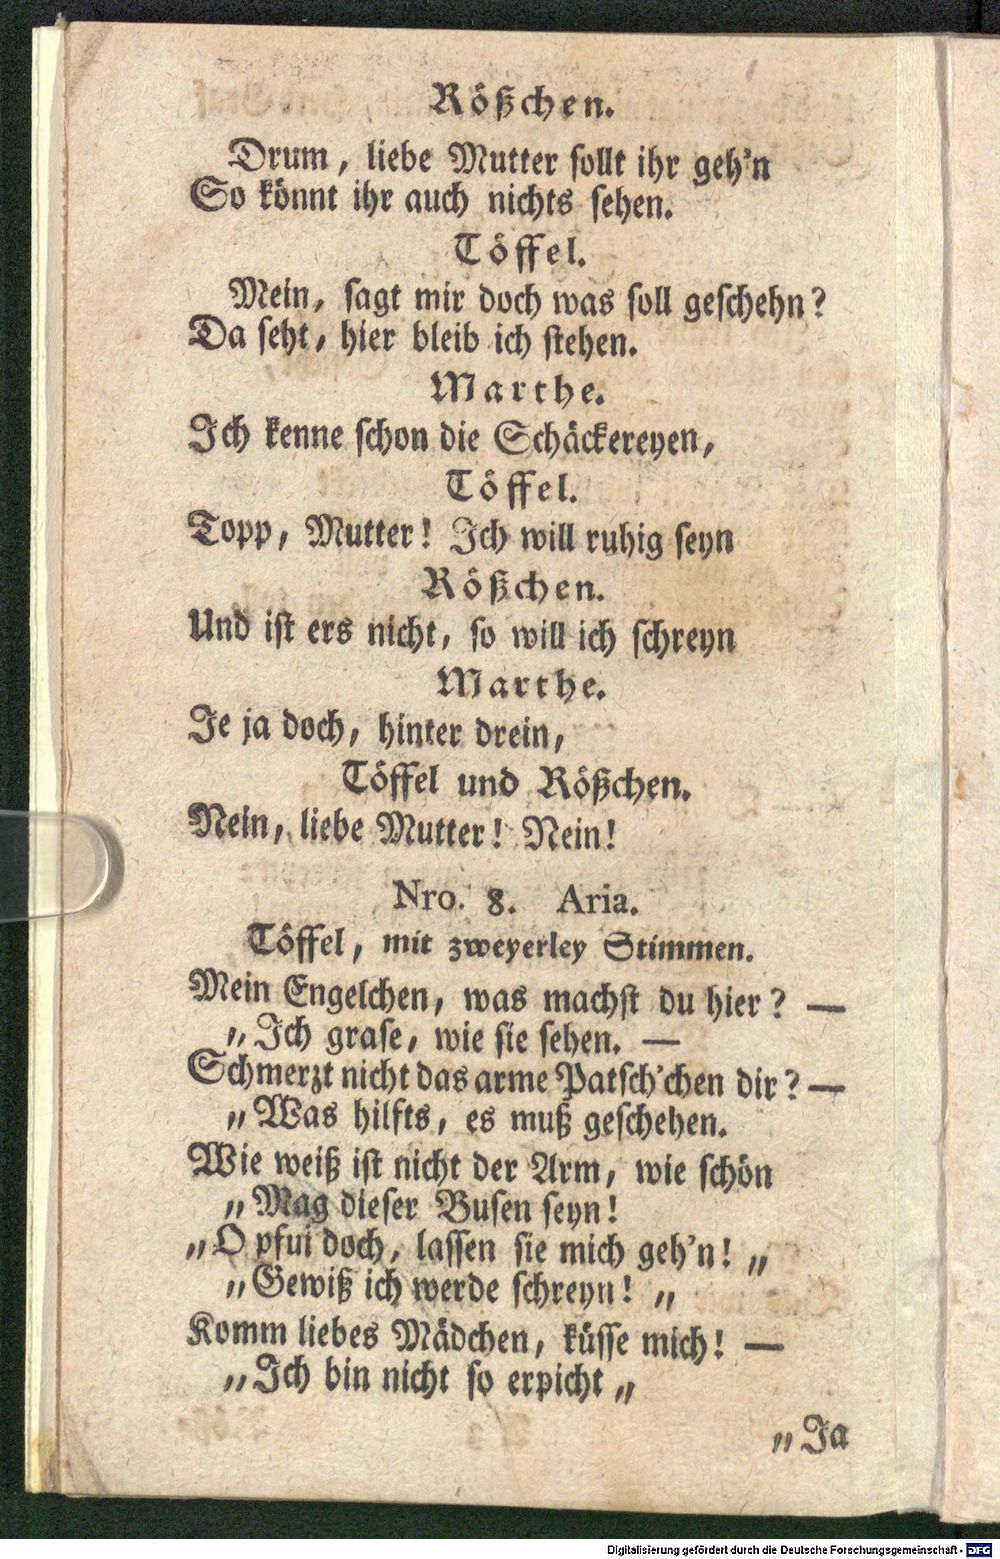 Rößchen.
Drum, liebe Mutter sollt ihr geh'n
So könnt ihr auch nichts sehen.
Töffel.
Mein, sagt mir doch was soll geschehn?
Da seht, hier bleib ich stehen.
Marthe.
Ich kenne schon die Schäckereyen,
Töffel.
Topp, Mutter! Ich will ruhig seyn
Rößchen.
Und ist ers nicht, so will ich schreyn
Marthe.
Je ja doch, hinter drein,
Töffel und Rößchen.
Nein, liebe Mutter! Nein!
Nro. 8. Aria.
Töffel, mit zweyerley Stimmen.
Mein Engelchen, was machst du hier? —
„Ich grase, wie sie sehen. —
Schmerzt nicht das arme Patsch'chen dir? —
„Was hilfts, es muß geschehen.
Wie weiß ist nicht der Arm, wie schön
„Mag dieser Busen seyn!
„O pfui doch, lassen sie mich geh'n! „
„Gewiß ich werde schreyn! „
Komm liebes Mädchen, küsse mich! —
„Ich bin nicht so erpicht „
„Ja
Digitalisierung gefördert durch die Deutsche Forschungsgemeinschaft - DFG